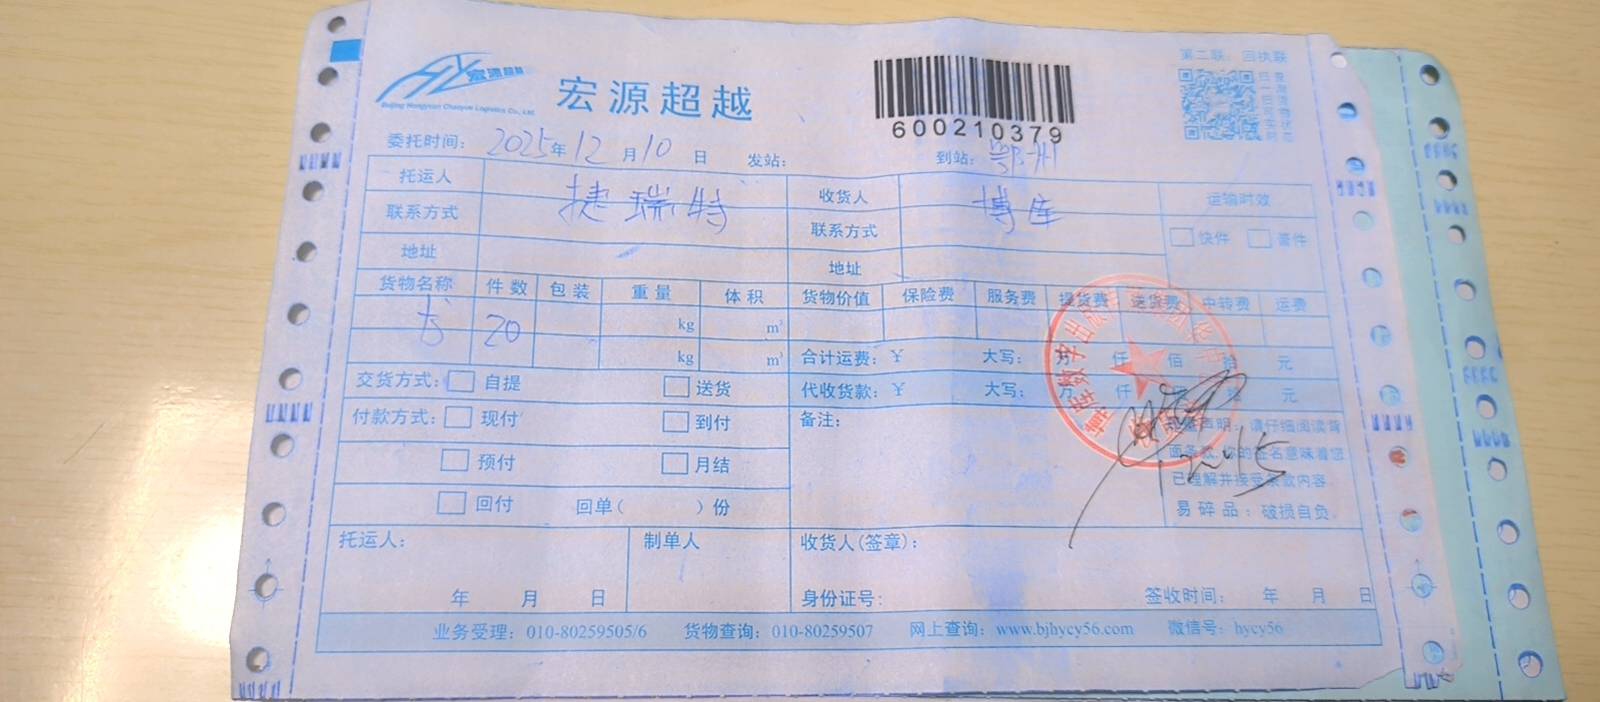 第二联：回执联
宏源超越
Beijing Hongyuan Chaoyue Logistics Co., Ltd.
宏源超越
600210379
委托时间： 2025年12月10日 发站： 到站：
托运人 捷瑞特 收货人 博库 运输时效
联系方式 联系方式 快件 普件
地址 地址
货物名称 件数 包装 重量 体积 货物价值 保险费 服务费 提货费 送货费 中转费 运费
20 kg m³
kg m³ 合计运费：￥ 大写： 万 仟 佰 拾 元
交货方式： 自提 送货 代收货款：￥ 大写： 万 仟 拾 元
付款方式： 现付 到付 备注：
声明：请仔细阅读背
预付 月结 面条款,你的签名意味着您
已理解并接受条款内容
回付 回单( )份 易碎品：破损自负
托运人： 制单人 收货人(签章)：
年 月 日 身份证号： 签收时间： 年 月 日
业务受理：010-80259505/6 货物查询：010-80259507 网上查询：www.bjhycy56.com 微信号：hycy56